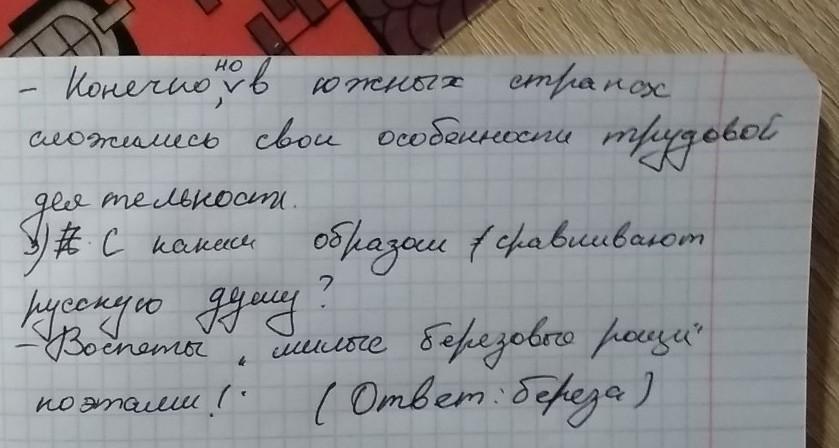 - Конечно, но в южных странах
сложились свои особенности трудовой
деятельности.
3) С каким образом сравнивают
русскую душу?
- Воспеты „милые березовые рощи"
поэтами! (Ответ: береза)